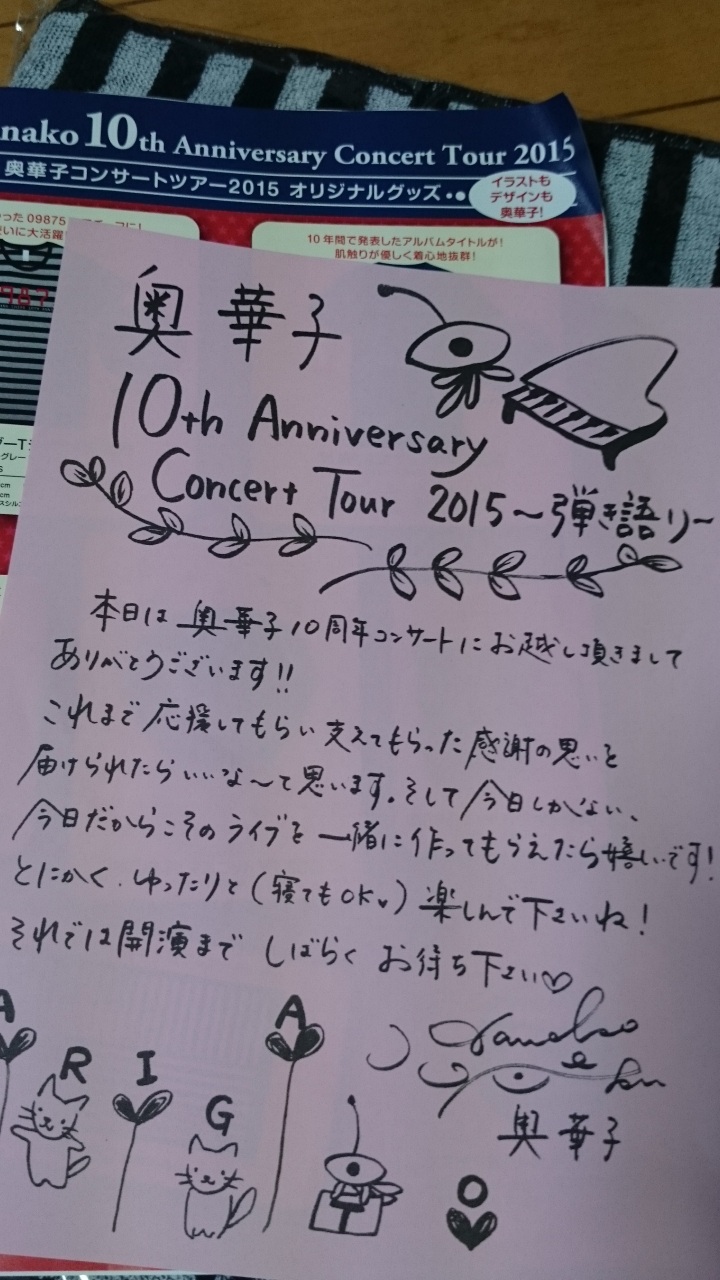 nako 10th Anniversary Concert Tour 2015
奥華子コンサートツアー2015 オリジナルグッズ・・
イラストも
デザインも
奥華子!
った 09875
いに大活躍
10年間で発表したアルバムタイトルが!
肌触りが優しく着心地抜群!
987
奥華子
10th Anniversary
Concert Tour 2015～弾き語り～
本日は奥華子10周年コンサートにお越し頂きまして
ありがとうございます!!
これまで応援してもらい支えてもらった感謝の思いを
届けられたらいいな～て思います。そして今日しかない、
今日だからこそのライブを一緒に作ってもらえたら嬉しいです!
とにかく、ゆったりと(寝てもOK♥)楽しんで下さいね!
それでは開演まで しばらく お待ち下さい♡
A R I G A T O
Hanako
Oku
奥華子